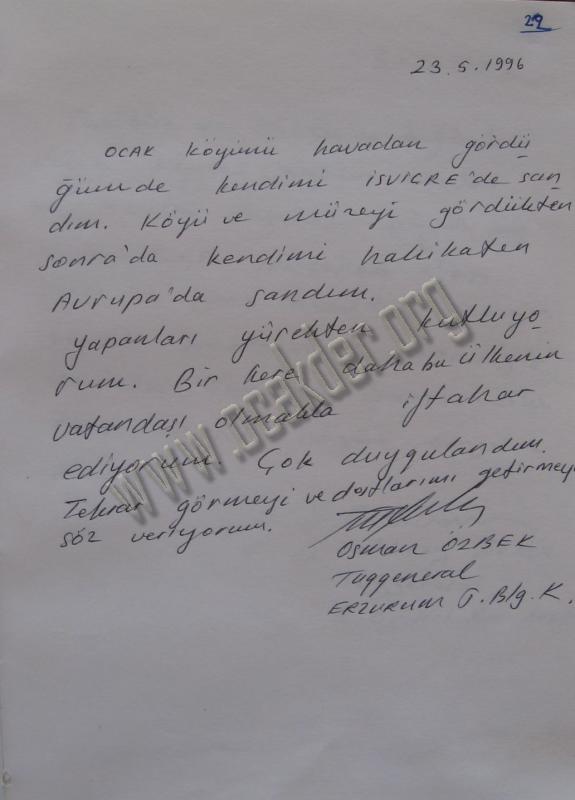 29
23.5.1996
OCAK köyünü havadan gördü
ğümde kendimi İSVİÇRE'de san
dım. Köyü ve müzeyi gördükten
sonra'da kendimi hakikaten
Avrupa'da sandım.
yapanları yürekten kutluyo
rum. Bir kere daha bu ülkenin
vatandaşı olmakla iftahar
ediyorum. Çok duygulandım.
Tekrar görmeyi ve dostlarımı getirmeye
söz veriyorum.
Osman ÖZBEK
Tuğgeneral
ERZURUM J. Blg. K.
www.ocakder.org